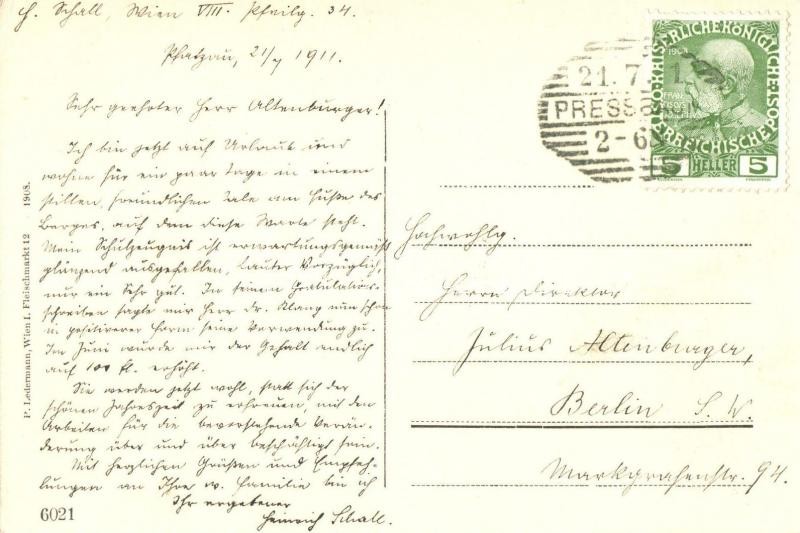 H. Schall, Wien VIII. Pfeilg. 34.
21/7 1911.
Sehr geehrter Herr Altenburger!
Ich bin jetzt auf Urlaub und
wohne für ein paar Tage in einem
stillen, freundlichen Tale am Fuße des
Berges, auf dem diese Warte steht.
Mein Schulzeugnis ist erwartungsgemäß
glänzend ausgefallen, lauter Vorzüglich,
nur ein Sehr gut. In seinem Gratulations-
schreiben sagte mir Herr Dr. Klang nun schon
in positiverer Form seine Verwendung zu.
Im Juni wurde mir der Gehalt endlich
auf 100 fl. erhöht.
Sie werden jetzt wohl, statt sich der
schönen Jahreszeit zu erfreuen, mit den
Arbeiten für die bevorstehende Verän-
derung über und über beschäftigt sein.
Mit herzlichen Grüßen und Empfeh-
lungen an Ihre w. Familie bin ich
Ihr ergebener
Heinrich Schall.
P. Ledermann, Wien I. Fleischmarkt 12 1908.
6021
21.7. 1
PRESSBAUM
2-6
KAISERLICHE KÖNIGLICHE
1908
ÖSTERREICHISCHE
5 HELLER 5
Hochwohlg.
Herrn Direktor
Julius Altenburger,
Berlin S. W.
Markgrafenstr. 94.